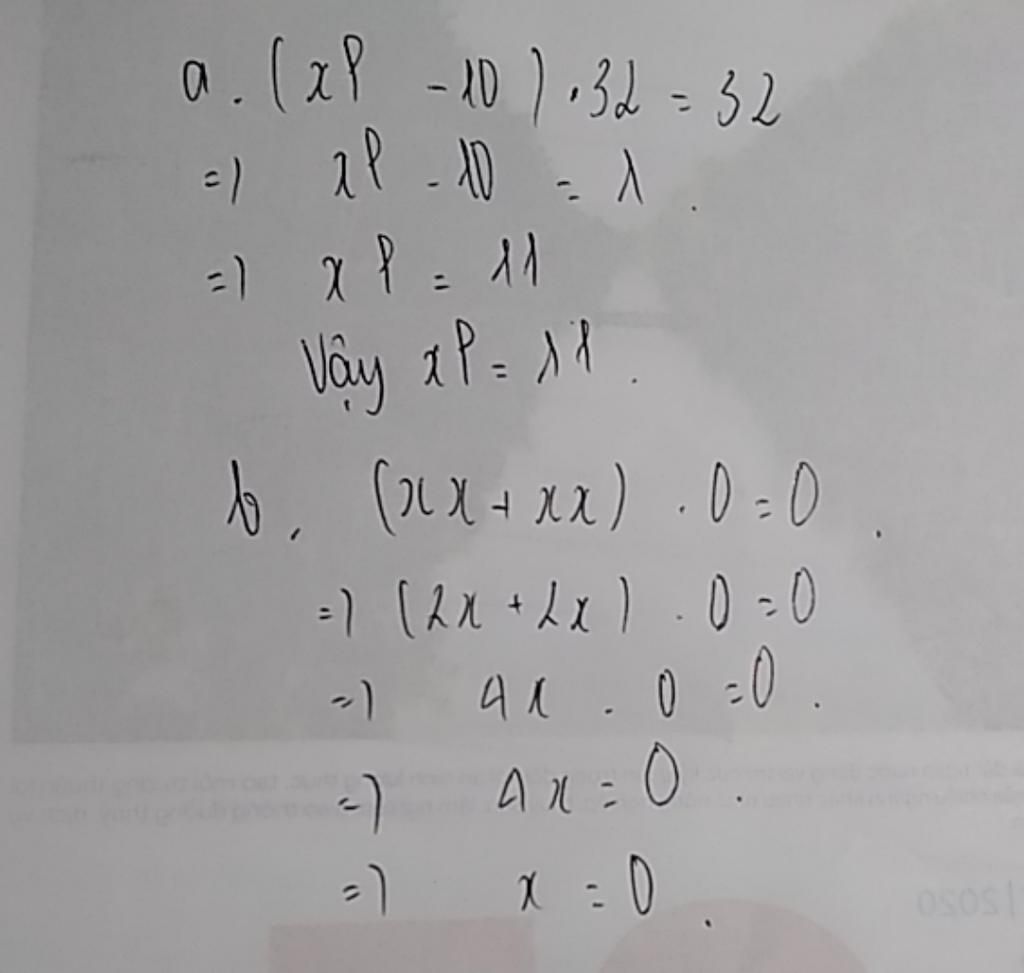 a. (xP - 10) . 32 = 32
=) xP - 10 = 1.
=) xP = 11
Vậy xP = 11.
b. (xx + xx) . 0 = 0.
=) (2x + 2x) . 0 = 0
=) 4x . 0 = 0.
=) 4x = 0.
=) x = 0.
2020